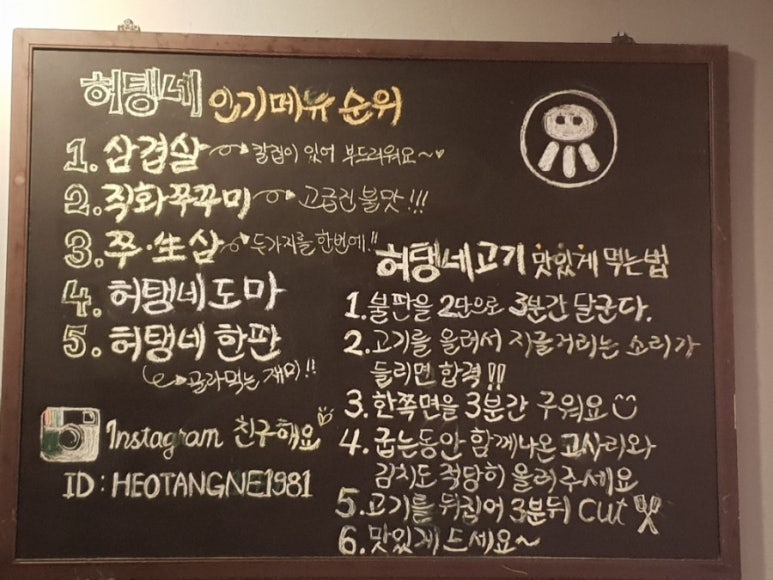 허탱네 인기메뉴 순위
1. 삼겹살 칼집이 있어 부드러워요~♥
2. 직화쭈꾸미 고급진 불맛!!!
3. 쭈·生삼 두가지를 한번에!!
4. 허탱네 도마
5. 허탱네 한판
골라먹는 재미!!
Instagram 친구해요
ID : HEOTANGNE1981
허탱네고기 맛있게 먹는법
1. 불판을 2단으로 3분간 달군다.
2. 고기를 올려서 지글거리는 소리가
들리면 합격!!
3. 한쪽면을 3분간 구워요
4. 굽는동안 함께나온 고사리와
김치도 적당히 올려주세요
5. 고기를 뒤집어 3분뒤 cut
6. 맛있게 드세요~